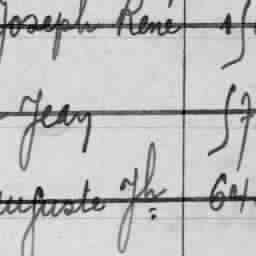 Joseph René 1
Jean 57
Auguste Jh 64